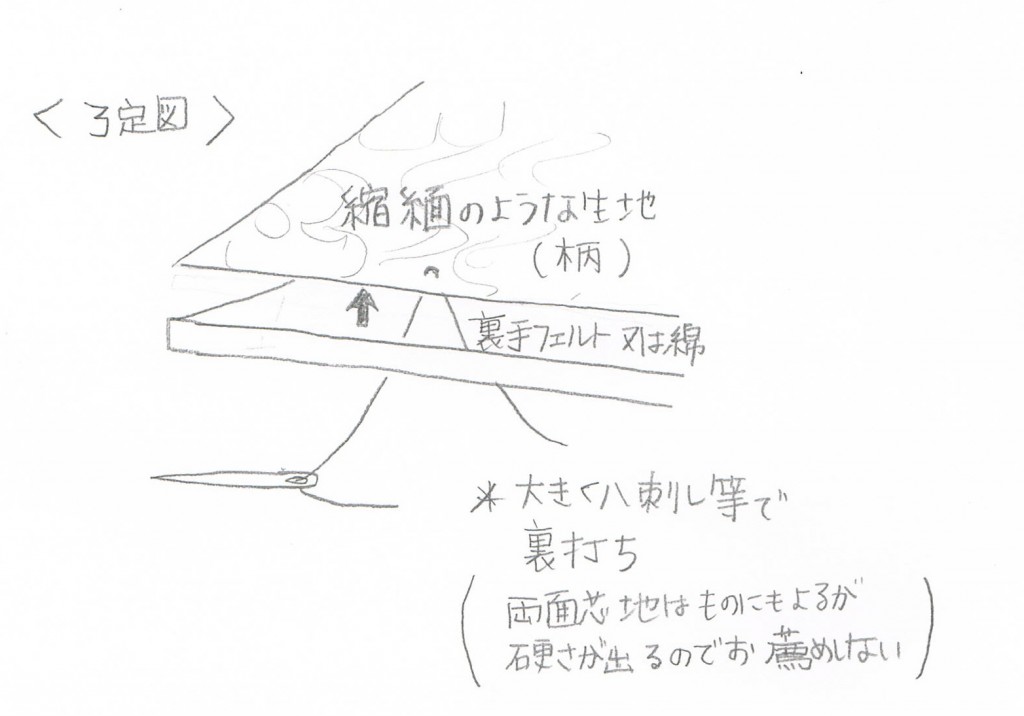 ＜ろ定図＞
縮緬のような生地
(柄)
裏手フェルト又は綿
＊大きくハ刺し等で
裏打ち
(両面芯地はものにもよるが
硬さが出るのでお薦めしない)